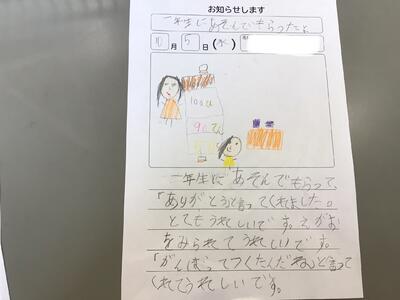 お知らせします
一年生にあそんでもらったよ
10月5日(水)
100ひ
90ひ
一年生にあそんでもらって、
「ありがとうと言ってくれました。
とてもうれしいです。えがお
をみられてうれしいです。
「がんばってつくたんだね」と言って
くれてうれしいです。